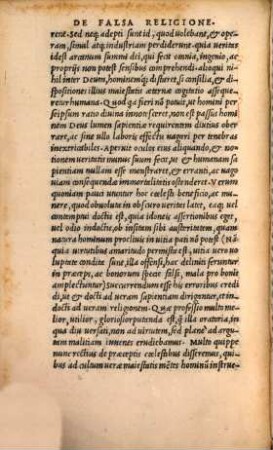 DE FALSA RELIGIONE.
rent. Sed neq; adepti sunt id, quod uolebant, & ope-
ram, simul atq; industriam perdiderunt. quia ueritas
idest arcanum summi dei, qui fecit omnia, ingenio, ac
proprijs non potest sensibus comprehendi. alioqui ni-
hil inter Deum, hominemq; distaret, si consilia, & di-
spositiones illius maiestatis æternæ cogitatio asseque
retur humana. Quod qa fieri nō potuit, ut homini per
seipsum ratio diuina innotesceret, non est passus homi
nem Deus lumen sapientiæ requirentem diutius ober-
rare, ac sine ullo laboris effectu uagari per tenebras
inextricabiles. Aperuit oculos eius aliquando, & no-
tionem ueritatis munus suum fecit, ut & humanam sa-
pientiam nullam esse monstraret, & erranti, ac uago
uiam consequendæ immortalitatis ostenderet. Verum
quoniam pauci utuntur hoc cælesti beneficio, ac mune-
re, quod obuoluta in obscuro ueritas latet, eaq; uel
contemptui doctis est, quia idoneis assertionibus eget,
uel odio indoctis, ob insitam sibi austeritatem, quam
natura hominum procliuis in uitia pati nō potest (Nā
quia uirtutibus amaritudo permista est, uitia uero uo
luptate condita sunt, illa offensi, hac deliniti feruntur in
præceps, ac bonorum specie falsi, mala pro bonis
amplectuntur) Succurrendum esse his erroribus credi
di, ut & docti ad ueram sapientiam dirigantur, et in-
docti ad ueram religionem. Quæ professio multo me-
lior, utilior, gloriosior putanda est, q̃ illa oratoria, in
qua diu uersati, non ad uirtutem, sed planè ad argu-
tam malitiam iuuenes erudiebamus. Multo quippe
nunc rectius de præceptis cælestibus disseremus, qui-
bus ad cultum ueræ maiestatis mẽtes hominū instrue-